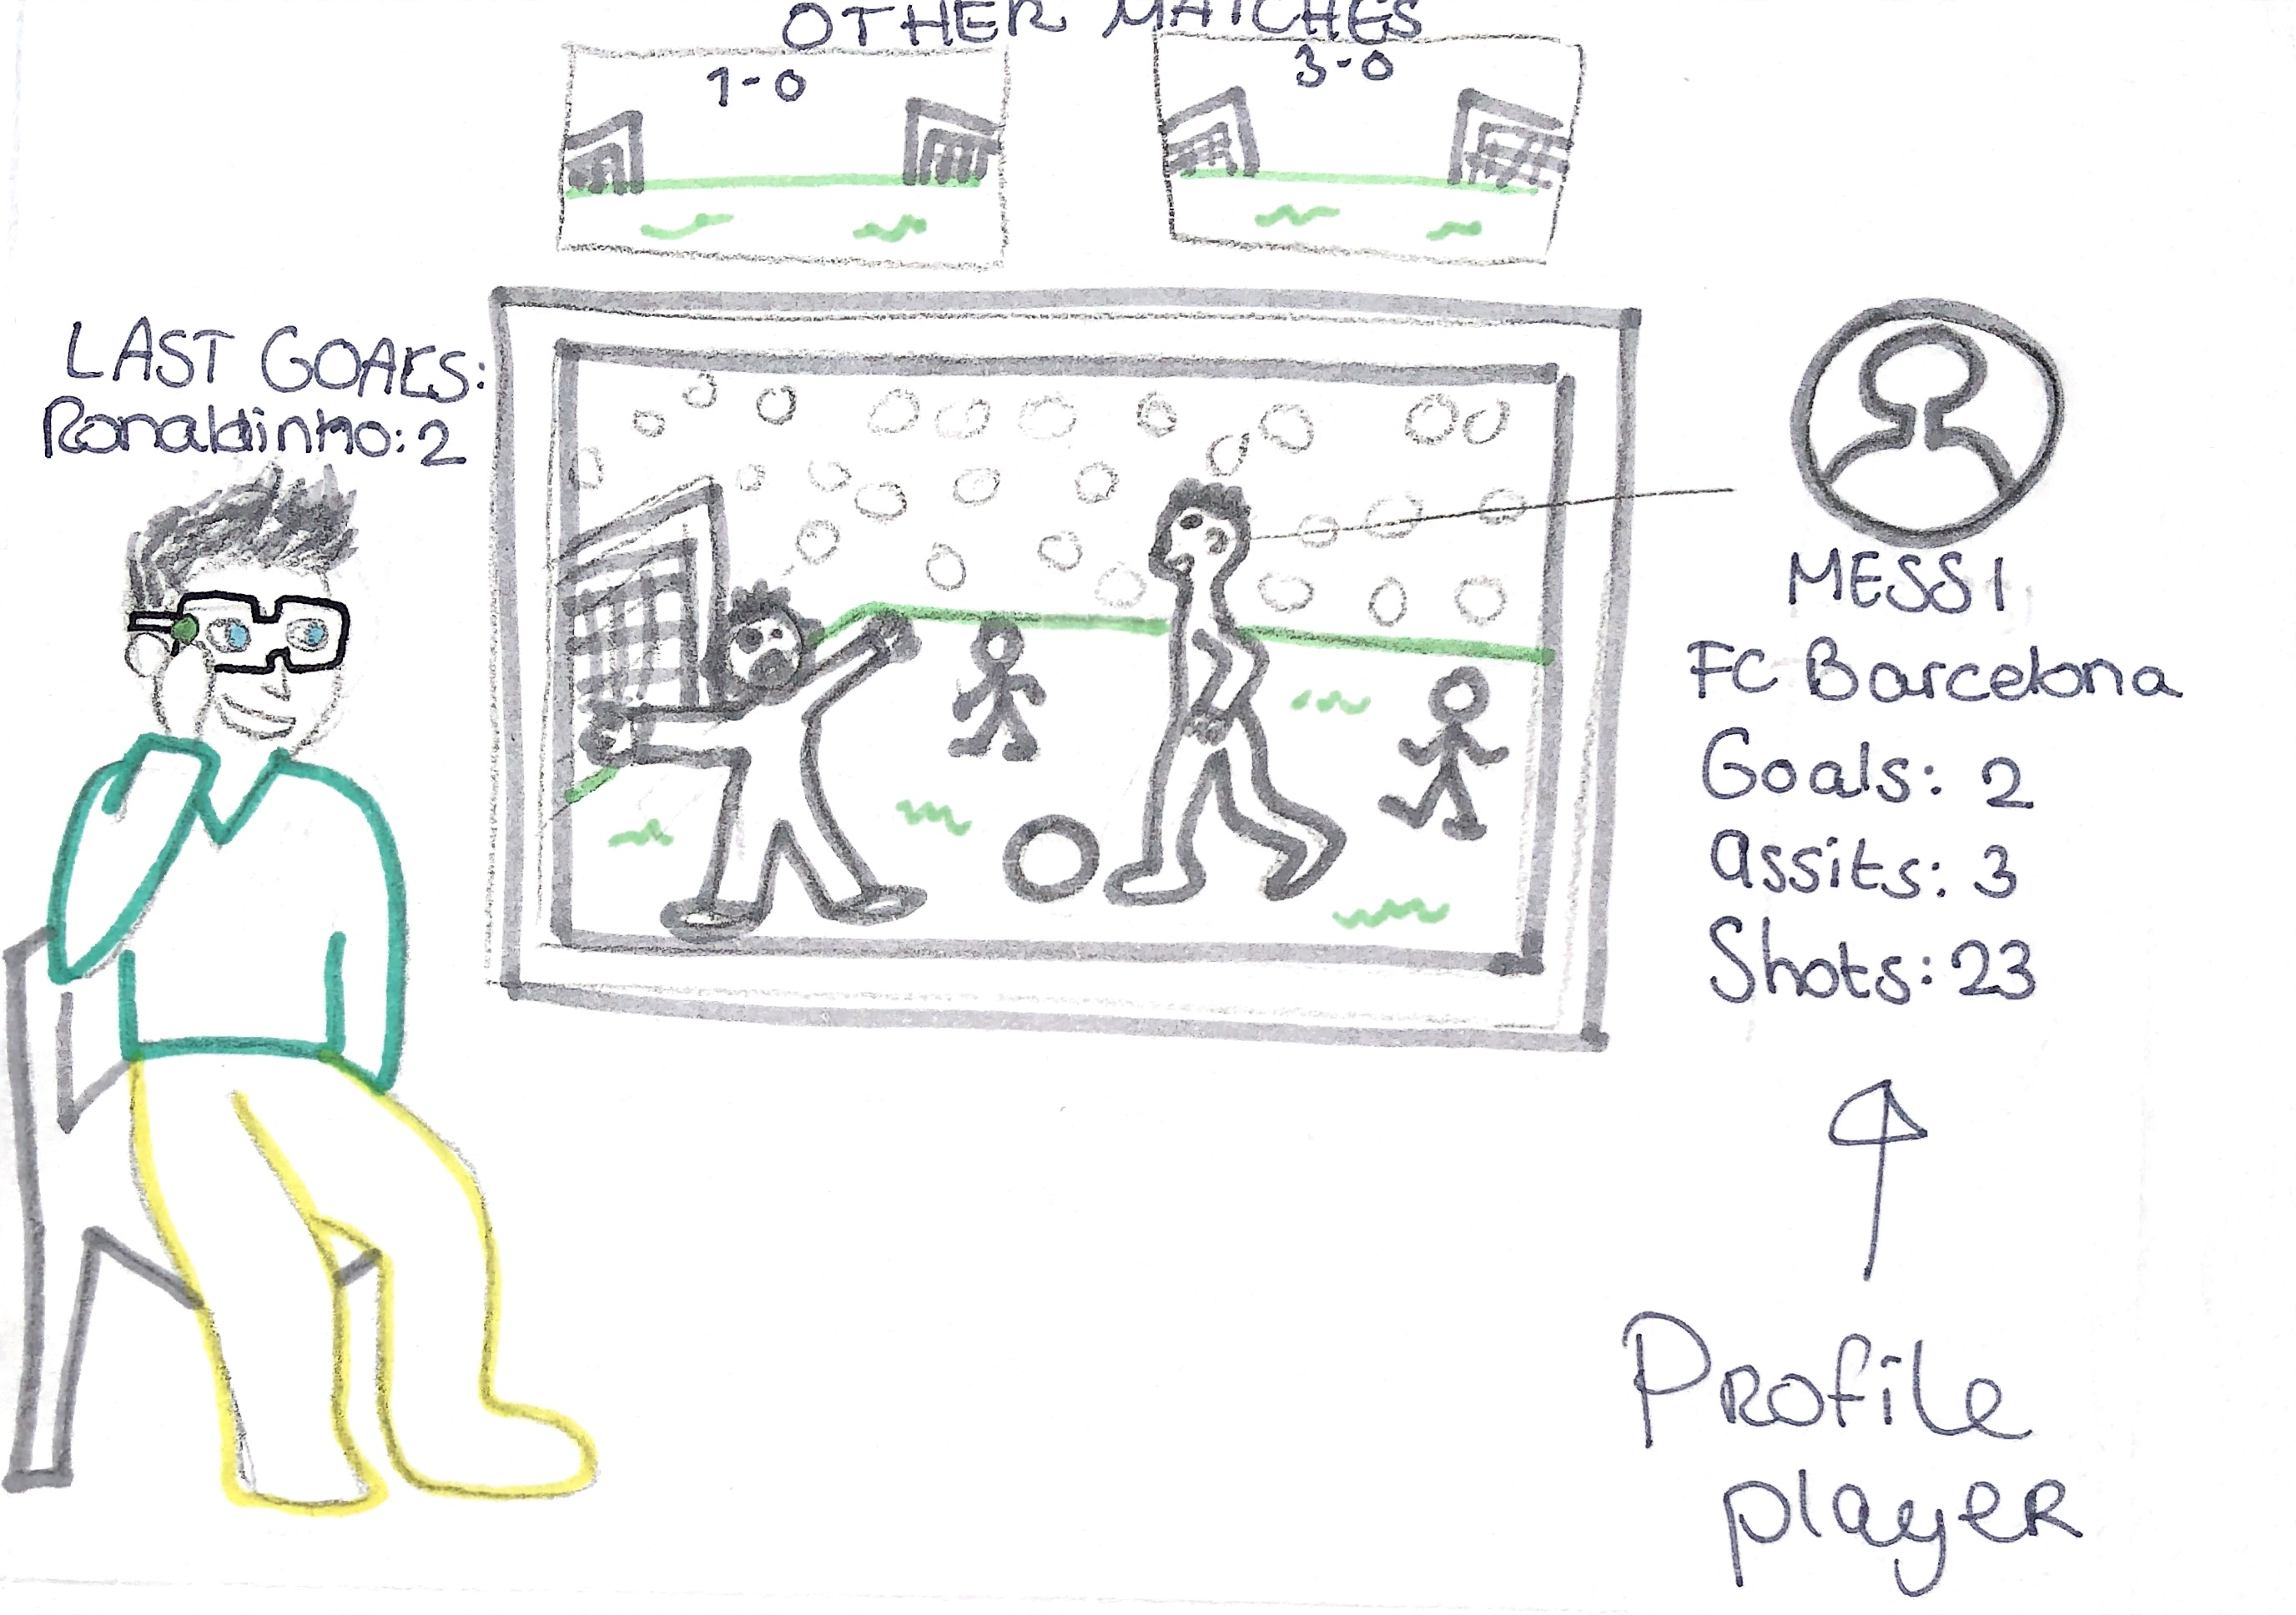 OTHER MATCHES
1-0
3-0
LAST GOALS:
Ronaldinho: 2
MESSI
FC Barcelona
Goals: 2
Assits: 3
Shots: 23
Profile
player